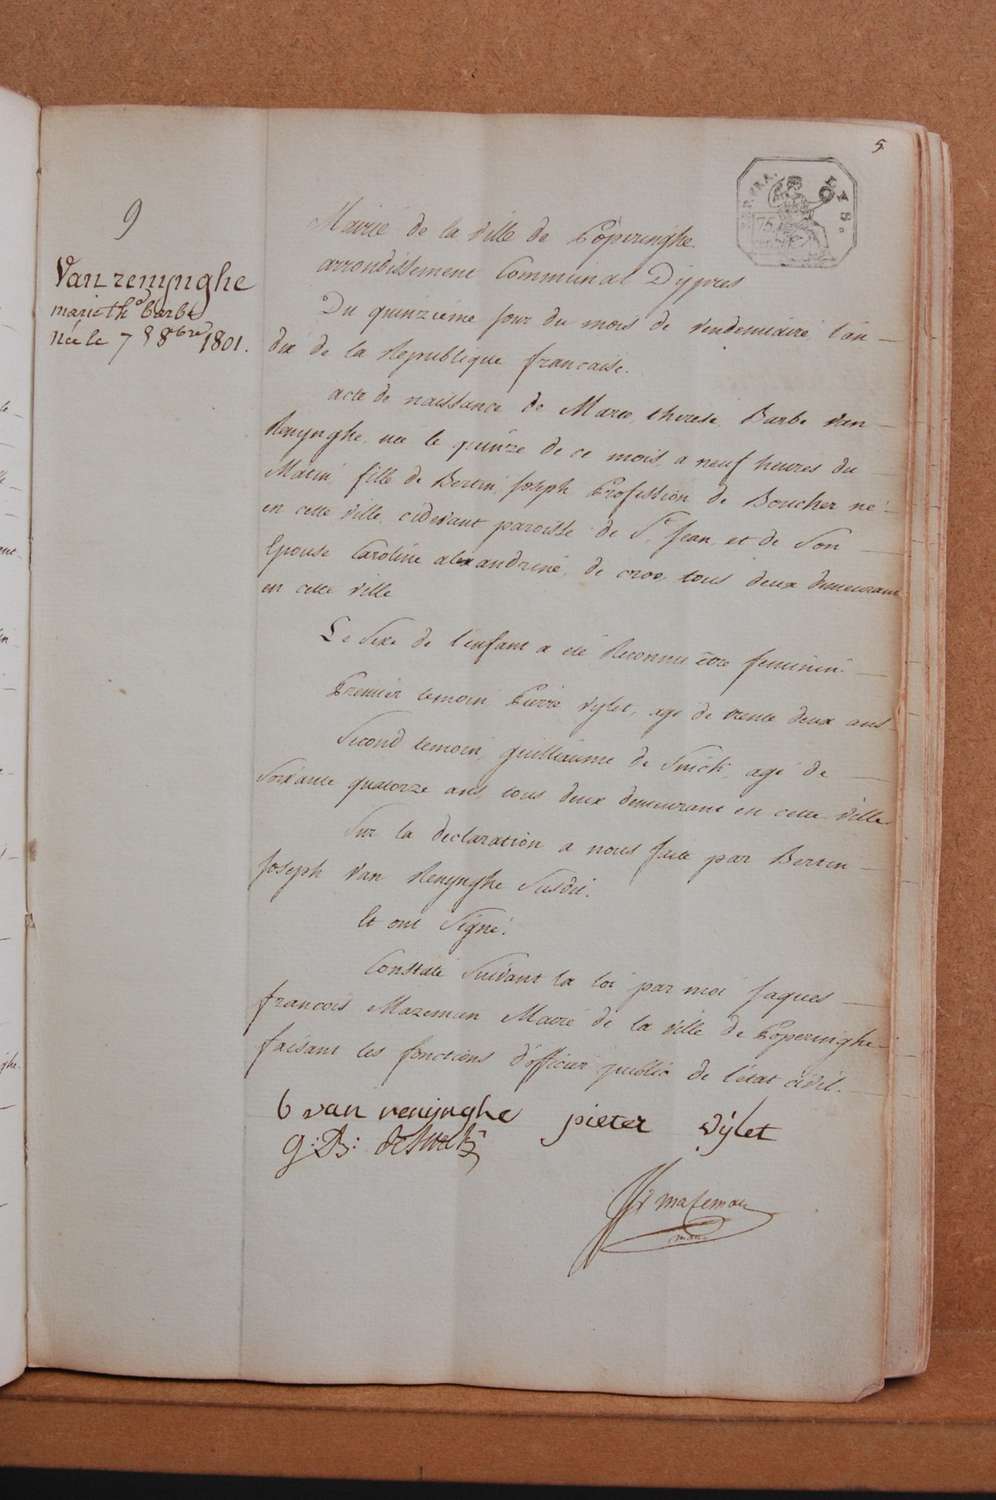 5
REP. FRA.
LYS.
75
9
Van renynghe
marie thᵉ barbe
née le 7 8bre 1801.
Mairie de la ville de Poperinghe
arrondissement Communal Dypres
Du quinzieme jour du mois de vendemiaire l'an
dix de la republique francaise.
acte de naissance de Marie therese Barbe van
Renynghe, née le quinze de ce mois, a neuf heures du
Matin, fille de Bertin Joseph Profession de Boucher né
en cette ville cidevant paroisse de St. Jean, et de Son
Epouse Caroline alexandrine, de croo, tous deux demeurant
en cette ville
Le Sexe de l'enfant a été Reconnu être feminin.
Premier temoin Pierre Vylet, age de trente deux ans
Second temoin, guilliaume de agé de
Soixante quatorze ans, tous deux demeurant en cette ville.
Sur la declaration a nous faite par Bertin
Joseph Van Renynghe Susdit.
Et ont Signé.
Constaté Suivant la loi par moi Jaques
francois Mazeman Maire de la ville de Poperinghe
faisant les fonctions d'officier public de l'état civil.
b van renynghe pieter Vylet
g: B:
mazeman